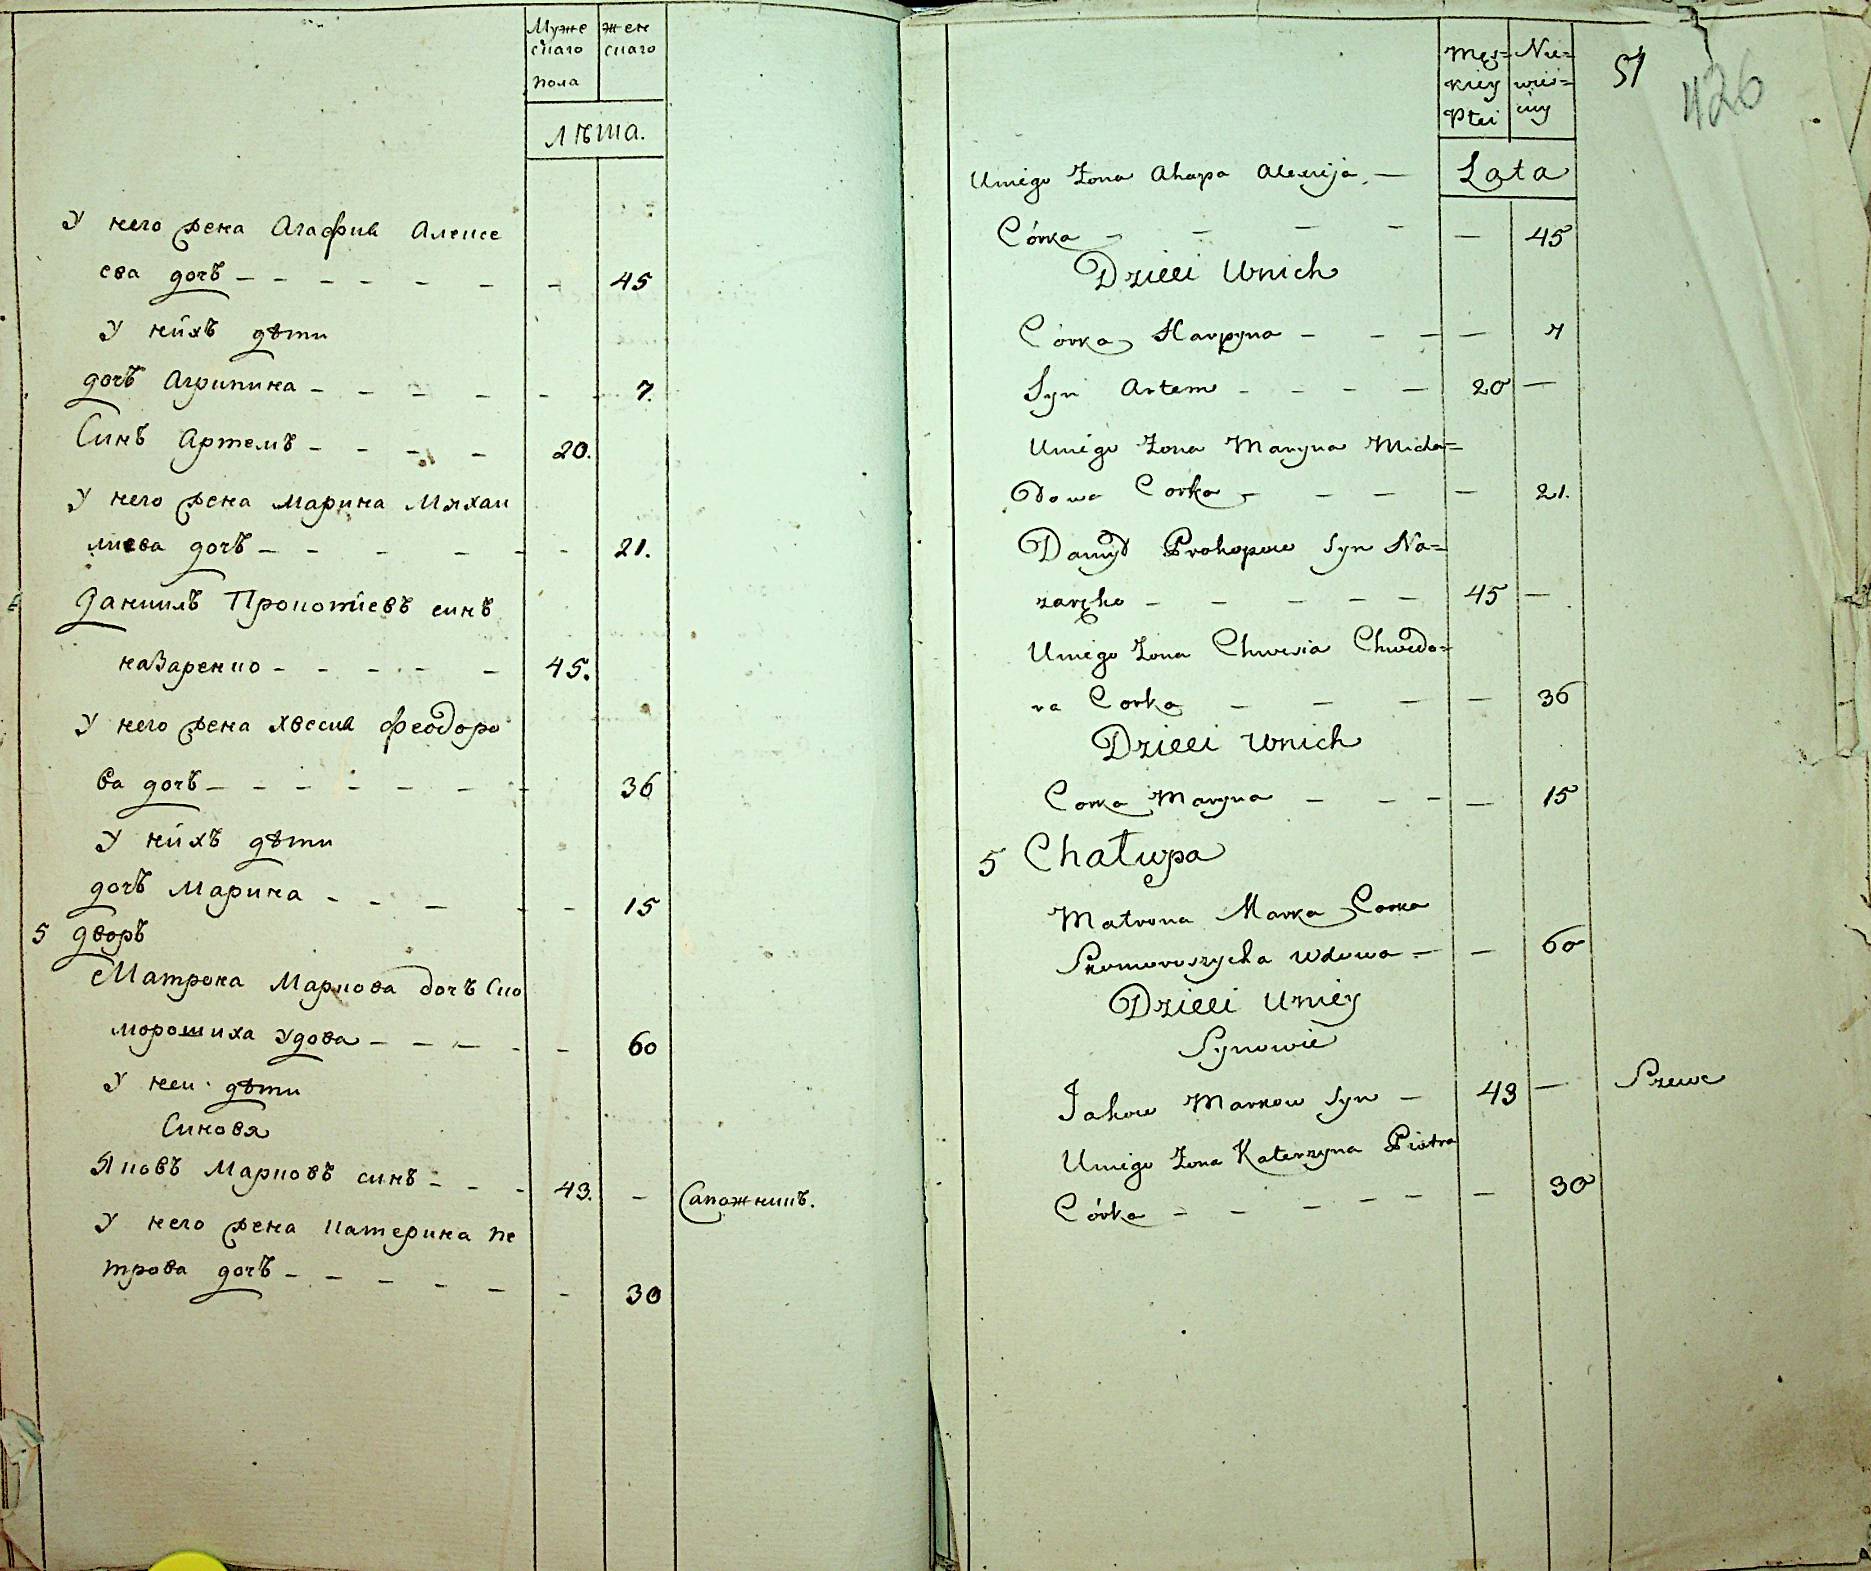 Муже
скаго
пола
жен
скаго
лѣта.
У него жена Агафия Алексе
ева дочъ - - - - - - - 45
У нихъ дѣти
дочъ Агрипина - - - - - - 7.
Синъ Артемъ - - - - 20.
У него жена Марина Михаи
лиева дочъ - - - - - - 21.
Даниилъ Прокопиевъ синъ
назаренко - - - - - 45.
У него жена хвесия феодоро
ва дочъ - - - - - - - 36
У нихъ дѣти
дочъ Марина - - - - - 15
5 дворъ
Матрона Маркова дочъ Ско
морошиха удова - - - - - 60
У неи дѣти
Синовя
Яковъ Марковъ синъ - - - 43. - Сапожникъ.
У него жена Катерина пе
трова дочъ - - - - - - 30
Męs=
kiey
Płci
Nie=
wieś=
ciey
51
426
Lata
Uniego Żona Ahapa Alexija -
Córka - - - - - 45
Dzieci Unich
Córka Harpyna - - - - 7
Syn Artem - - - - 20 -
Uniego Żona Maryna Micha=
łowa Corka - - - - 21.
Danyło Prokopow Syn Na=
zaręko - - - - - 45 -
Uniego Żona Chwesia Chwedo=
ra Corka - - - - 36
Dzieci Unich
Corka Maryna - - - - 15
5 Chałupa
Matrona Marka Corka
Skomoroszycha Wdowa - - 60
Dzieci Uniey
Synowie
Jakow Markow Syn - 43 - Szewc
Uniego Żona Katerzyna Piotra
Córka - - - - - - 30